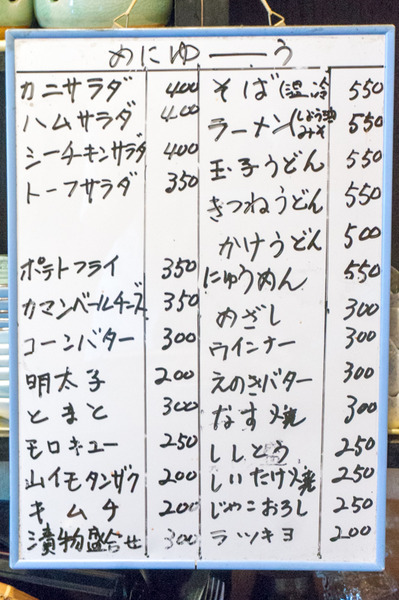 めにゅーう
カニサラダ 400
ハムサラダ 400
シーチキンサラダ 400
トーフサラダ 350
ポテトフライ 350
カマンベールチーズ 350
コーンバター 300
明太子 200
とまと 300
モロキュー 250
山イモタンザク 200
キムチ 200
漬物盛合せ 300
そば(温、冷) 550
ラーメン(しょう油 みそ) 550
玉子うどん 550
きつねうどん 550
かけうどん 500
にゅうめん 550
めざし 300
ウインナー 300
えのきバター 300
なす焼 300
ししとう 250
しいたけ焼 250
じゃこおろし 250
ラッキョ 200